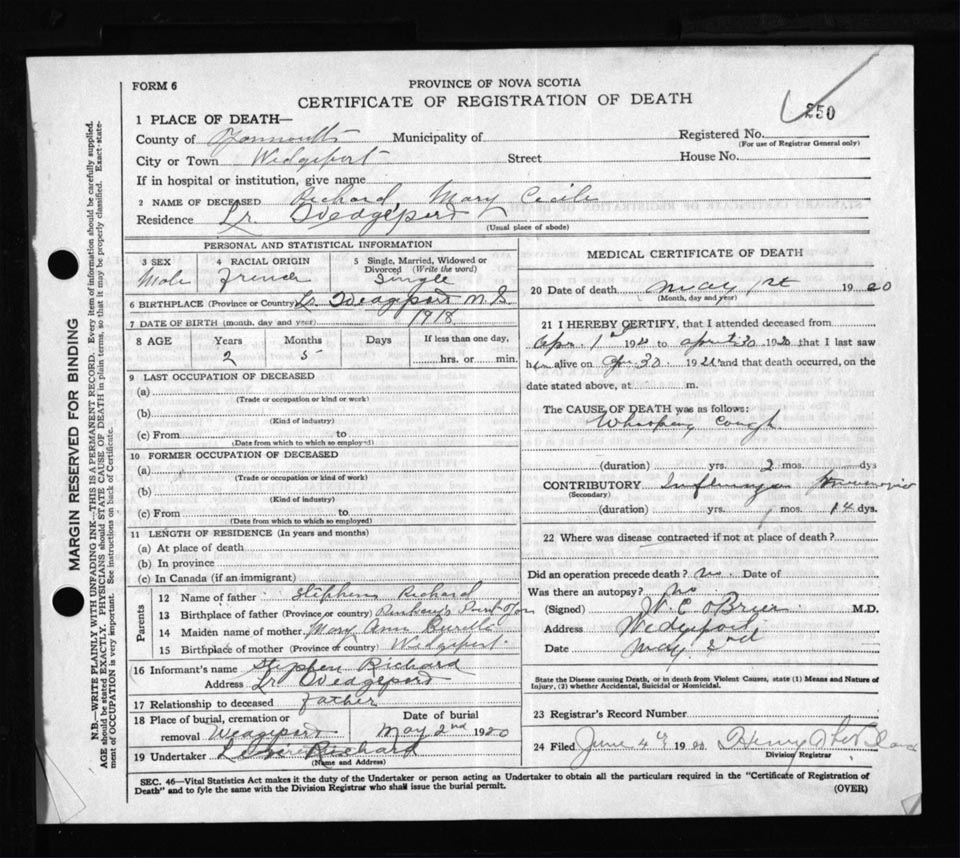 FORM 6
PROVINCE OF NOVA SCOTIA
CERTIFICATE OF REGISTRATION OF DEATH
250
1 PLACE OF DEATH—
County of Yarmouth Municipality of Registered No.
(For use of Registrar General only)
City or Town Wedgeport Street House No.
If in hospital or institution, give name
2 NAME OF DECEASED Richard, Mary Cecile
Residence Lr. Wedgeport
(Usual place of abode)
PERSONAL AND STATISTICAL INFORMATION
3 SEX 4 RACIAL ORIGIN 5 Single, Married, Widowed or Divorced (Write the word)
Male French Single
6 BIRTHPLACE (Province or Country) Lr. Wedgeport N.S.
7 DATE OF BIRTH (month, day and year) 1918
8 AGE Years Months Days If less than one day,
2 5 hrs. or min.
9 LAST OCCUPATION OF DECEASED
(a)
(Trade or occupation or kind or work)
(b)
(Kind of industry)
(c) From to
(Date from which to which so employed)
10 FORMER OCCUPATION OF DECEASED
(a)
(Trade or occupation or kind of work)
(b)
(Kind of industry)
(c) From to
(Date from which to which so employed)
11 LENGTH OF RESIDENCE (In years and months)
(a) At place of death
(b) In province
(c) In Canada (if an immigrant)
Parents
12 Name of father Stephen Richard
13 Birthplace of father (Province or country) Point
14 Maiden name of mother Mary Ann
15 Birthplace of mother (Province or country) Wedgeport
16 Informant's name Stephen Richard
Address Lr. Wedgeport
17 Relationship to deceased Father
18 Place of burial, cremation or removal Wedgeport Date of burial May 2nd 1920
19 Undertaker Richard
(Name and Address)
MEDICAL CERTIFICATE OF DEATH
20 Date of death May 1st 1920
(Month, day and year)
21 I HEREBY CERTIFY, that I attended deceased from
Apr. 1st 1920 to April 30 1920 that I last saw
h alive on Apr 30 1920 and that death occurred, on the
date stated above, at m.
The CAUSE OF DEATH was as follows:
Whooping Cough
(duration) yrs. 2 mos. dys
CONTRIBUTORY Influenza Pneumonia
(Secondary)
(duration) yrs. mos. 14 dys.
22 Where was disease contracted if not at place of death?
Did an operation precede death? no. Date of
Was there an autopsy? No
(Signed) O'Brien M.D.
Address Wedgeport
Date May 2nd
State the Disease causing Death, or in death from Violent Causes, state (1) Means and Nature of
Injury, (2) whether Accidental, Suicidal or Homicidal.
23 Registrar's Record Number
24 Filed June 4th 1920 Henry
Division Registrar
SEC. 46—Vital Statistics Act makes it the duty of the Undertaker or person acting as Undertaker to obtain all the particulars required in the "Certificate of Registration of
Death" and to fyle the same with the Division Registrar who shall issue the burial permit.
(OVER)
MARGIN RESERVED FOR BINDING
N.B.—WRITE PLAINLY WITH UNFADING INK—THIS IS A PERMANENT RECORD. Every item of information should be carefully supplied.
AGE should be stated EXACTLY. PHYSICIANS should STATE CAUSE OF DEATH in plain terms, so that it may be properly classified. Exact-state-
ment of OCCUPATION is very important. See instructions on back of Certificate.